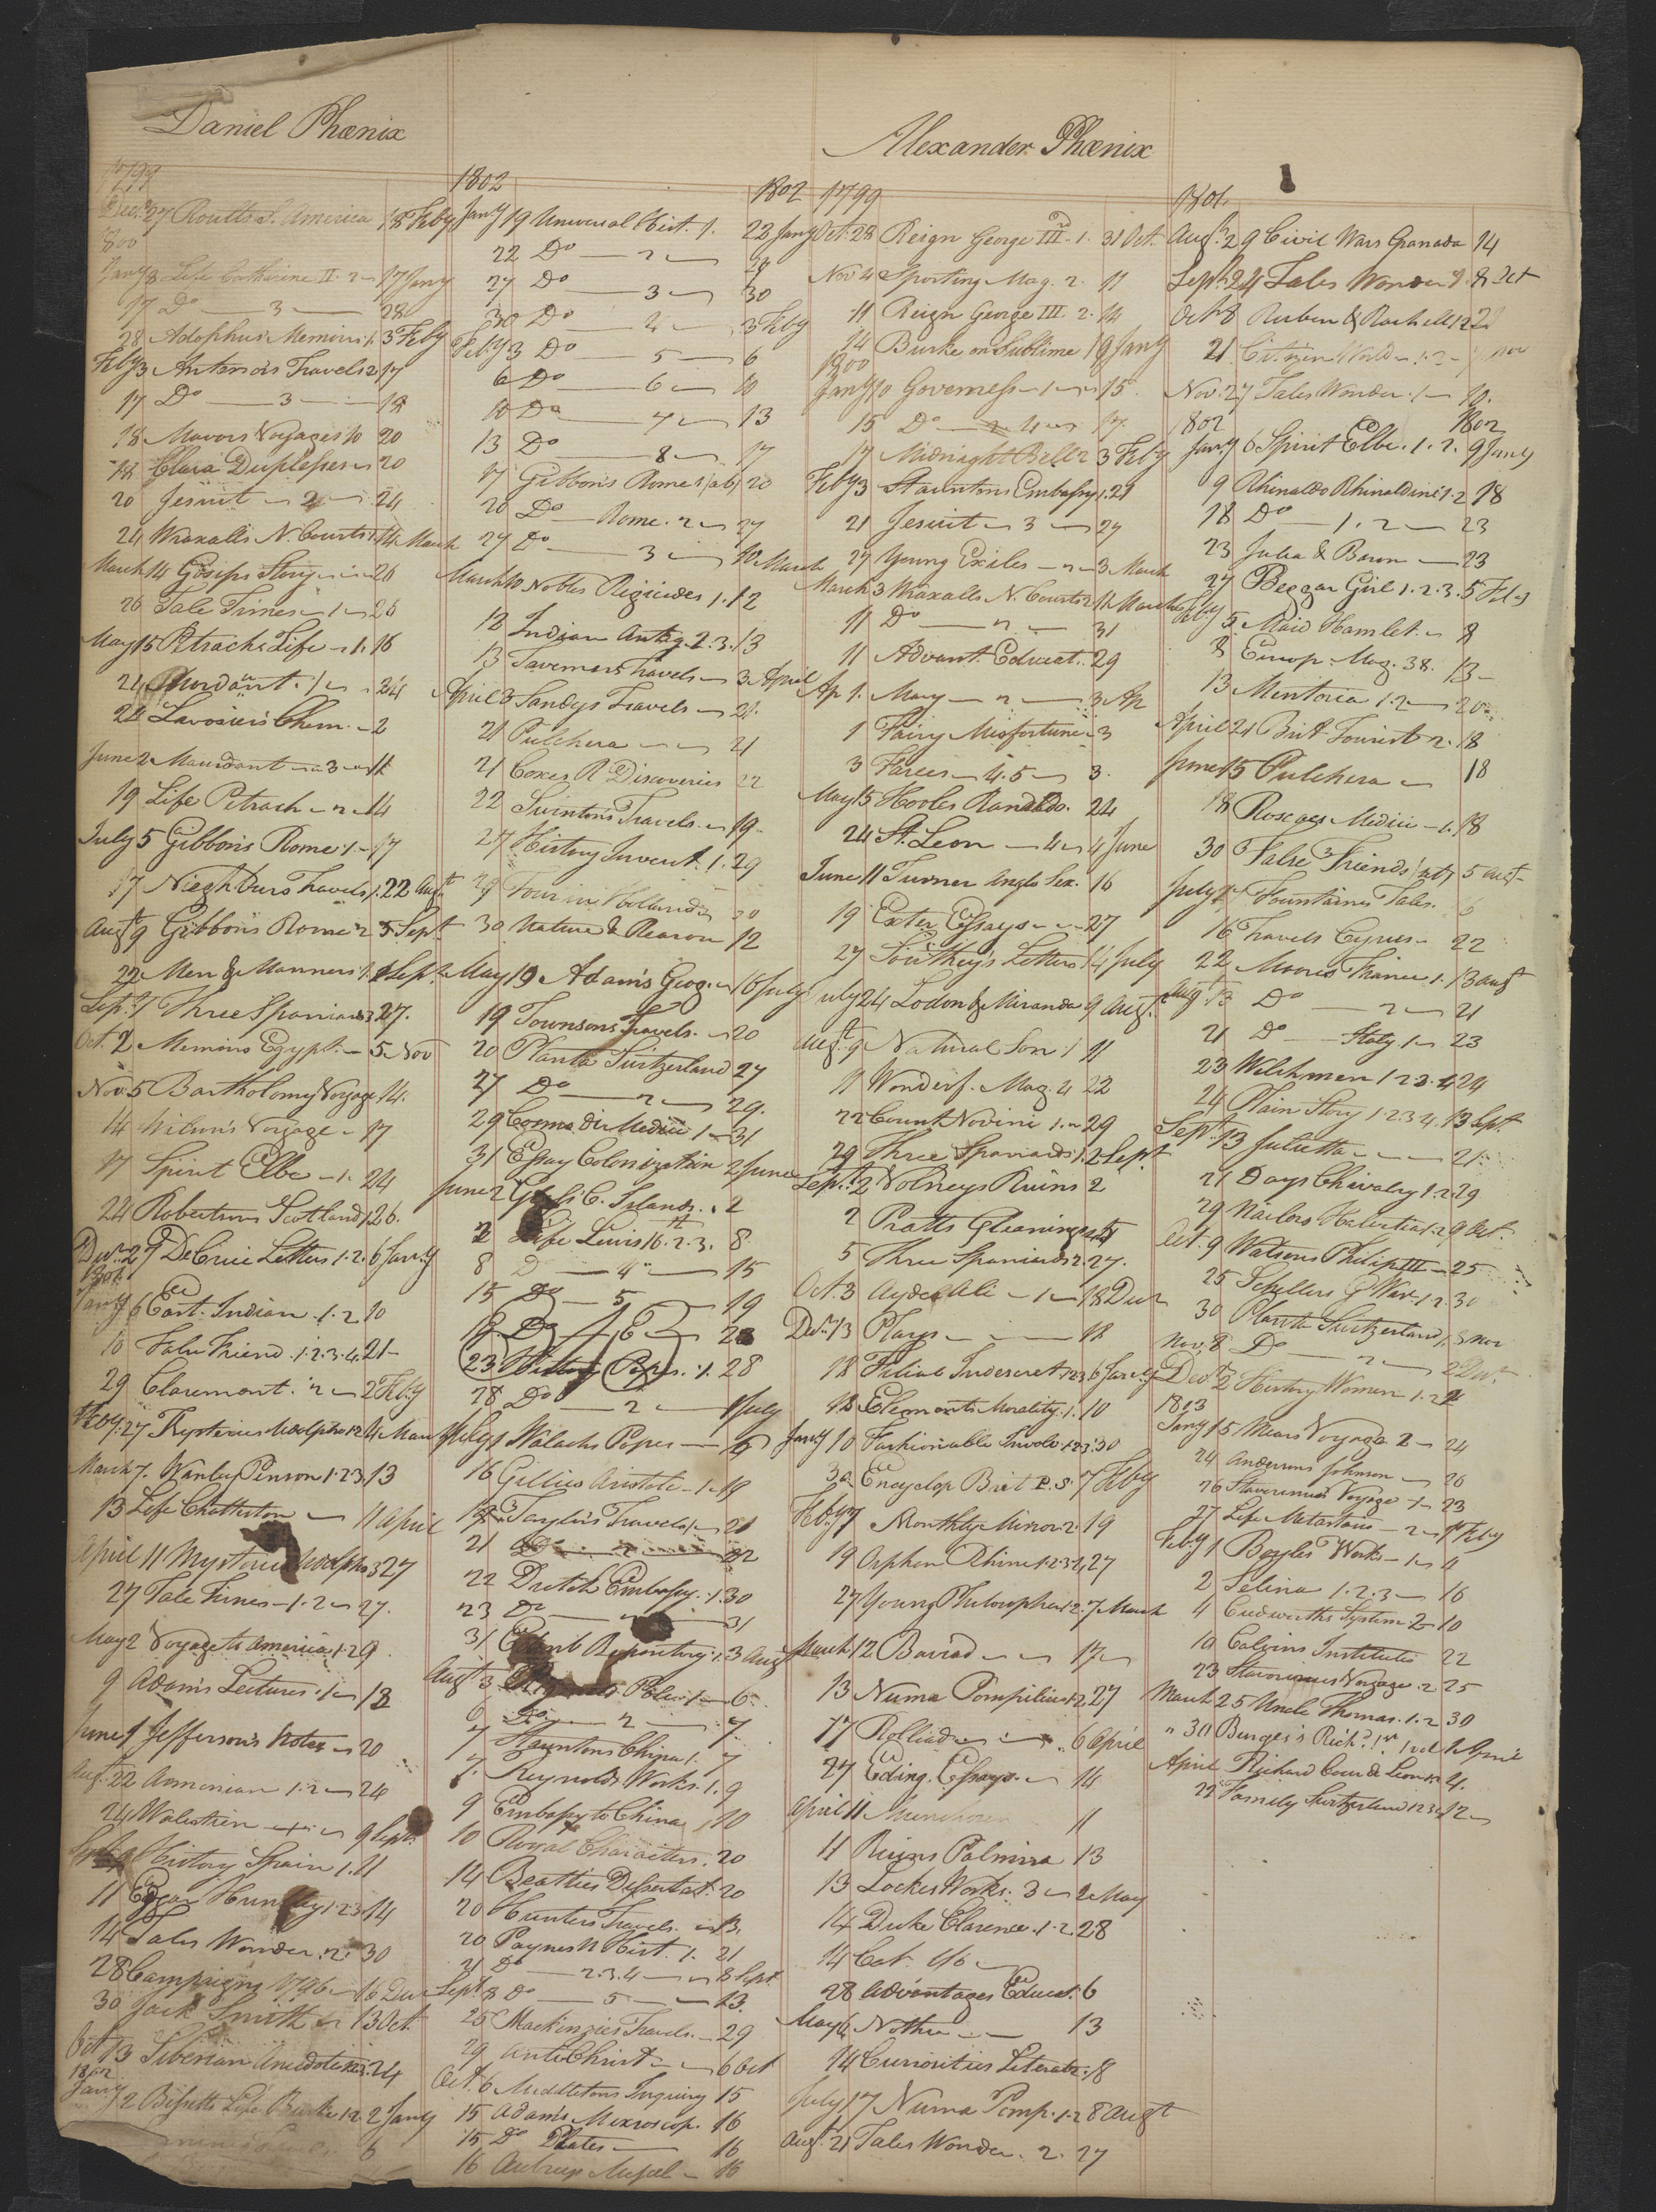 Daniel Phœnix
1799
Decr 27 Routts S. America 18 Feby
1800
Jany 8 Life Catherine II. 2 17 Jany
17 Do 3 28
28 Adolphus Memoirs 1. 3 Feby
Feby 3 Antenor's Travels 2 17
17 Do 3 18
18 Mavors Voyages 10 20
18 Clara Duplesses 20
20 Jesuit 2 24
24 Wraxalls N. Courts 1. 14 March
March 14 Gosips Story 26
26 Tale Times 1 28
May 15 Petrachs Life 1. 16
24 Mordant. 1 24
24 Lavosier's Chem. 2
June 2 Mourdant 3 12
19 Life Petrach 2 14
July 5 Gibbons Rome. 1. 17
17 Nieghburs Travels 1. 22 Augt
Augt 9 Gibbons Rome 2 5 Sept
22 Men & Manners 1. Sept. 2
Sept. 7 Three Spaniards 3 27.
Oct. 2 Memoirs Egypt. 5 Nov
Nov. 5 Bartholomy Voyage 14.
14 Wilson's Voyage 17
17 Spirit Elbe 1. 24
24 Robertsons Scotland 1. 26.
Decr. 27 De Crui Letters 1. 2. 6 Jany
1801
Jany 6 East. Indian 1. 2 10
10 False Friend. 1. 2. 3. 4. 21
29 Claremont. 2 2 Feby
Feby. 27 Mysteries Udolpho 1 2 4 March
March 7. Wanly Penson 1. 2 3. 13
13 Life Chatterton 11 April
April 11 Mysteries Udolpho 3 27
27 Tale Times 1. 2 27.
May 2 Voyage to America 1. 2 9
9 Adam's Lectures. 1 12
June 1 Jefferson's Notes 20
Aug. 22 Armenian 1. 2 24
24 Walstein 9 Sept.
Sept 9 History Spain 1. 11
11 Edgar Huntley 1. 2 3. 14
14 Tales Wonder. 2. 30
28 Campaigns 1796 16 Decr
30 Jack Smith 13 Oct.
Oct 13 Siberian Anecdotes 24
1802
Jany 2 Bissetts Life Burke 1 2. 2 Jany
6
1802 1802
Jany 19 Universal Hist. 1. 22 Jany
22 Do 2
27 Do 3 30
30 Do 4 3 Feby
Feby 3 Do 5 6
6 Do 6 10
10 Do 7 13
13 Do 8 17
17 Gibbons Rome 1 (ab) 20
20 Do Rome. 2 27
27 Do 3 10 March
March 10 Nobles Regicides 1. 12
12 Indian Antiq. 2. 3. 13
13 Taverniers Travels 3 April
April 3 Sandys Travels 21.
21 Pulchera 21
21 Coxes R. Discoveries 22
22 Swintons Travels. 19
27 History Invent. 1. 29
29 Tour in Holland 30
30 Nature & Reason 12
May 19 Adams Geog. 16 July
19 Townsons Travels. 20
20 Planta Switzerland 27
27 Do 2 29.
29 Cosmo di Medici 1 31
31 Essay Colonization 2 June
June 2 C. Islands. 2
2 Life Lewis 16th. 2. 3. 8
8 Do 4 15
15 Do 5 19
19 Do 6 28
23 History Popes. 1. 28
28 Do 2 July
July 1 Walachs Popes
16 Gillies Aristotle 1 19
19 Taylors Travels 1 21
21 Do 2 22
22 Dutch Embassy. 1. 30
23 Do 31
31 Repository 1. 3 Aug
Augt 3 1 6
6 Do 2 7.
7 Stauntons China 1. 7
7. Reynolds Works. 1. 9
9 Embassy to China 10
10 Royal Characters. 20
14 Beatties Dissertat. 20
20 Hunters Travels. 13.
20 Paynes U Hist. 1. 21
21 Do 2. 3. 4 8 Sept
Sept 8 Do 5 13.
25 Mackinzies Travels. 29
29 Anti Christ 6 Oct
Oct. 6 Middletons Inquiry 15
15 Adams Microscop. 16
15 Do Plates 16
16 16
Alexander Phœnix
1799
Oct. 28 Reign George III. 1. 31 Oct.
Nov 4 Sporting Mag. 2. 11
11 Reign George III. 2. 14
14 Burke on Sublime 9 Jany
1800
Jany 10 Governess 1 15
15 Do 4 17
17 Midnight Bell 2 3 Feby
Feby 3 Stauntons Embassy 1. 21
21 Jesuit 3 27
27 Young Exiles 2 3 March
March 3 Wraxalls N. Courts 2 11 March
11 Do 31
11 Advant. Educat. 29
Ap 1. Mary 2 3 Ap
1 Fairy Misfortune 3
3 Farces 4. 5 3.
May 15 Hooles 24
24 St. Leon 4 4 June
June 11 Turner Anglo Sax. 16
19 Exter Essays 27
27 Southey's Letters 14 July
July 24 Lodon & Miranda 9 Augt.
Augt. 9 Natural Son 1 11
11 Wonderf. Mag. 4 22
22 Count Novini 1. 29
29 Three Spaniards 1. 2 Sept.
Sept. 2 Volneys Ruins 2
2 Pratts Gleanings
5 Three Spaniards 2. 27.
Oct. 3 Ayder Ali 1 18 Decr
Decr. 13 Plays 18
18 Filial Indiscret. 1 2 3. 6 Jany
18 Elements Morality. 1. 10
Jany 10 Fashionable Involv. 1 2 3. 30
30 Encyclop Brit P. S. 7 Feby
Feby 7 Monthly Mirror 2. 19
19 Orphan Rhine 1. 2 3 4 27
27 Young Philosopher 1. 2. 7 March
March 12 Baviad 17
13 Numa Pompilius 1. 2 27
17 Rolliad 6 April
27 Eding. Essays. 14
April 11 11
11 Ruins Palmira 13
13 Lockes Works. 3 2 May
14 Duke Clarence. 1. 2. 28
14 Cat.
28 Advantages Educat. 6
May 6 13
14 Curiosities Literatr. 18
July 17 Numa Pomp. 1. 2 8 Augt
Augt. 21 Tales Wonder. 2. 27
1801.
Augt. 29 Civil Wars Granada 14
Sept. 24 Tales Wonder 2. 8 Oct
Oct 8 Ruben & Rachell 1 2
21 Citizen World 1. 2 Nov
Nov. 27 Tales Wonder. 1 10.
1802 1802
Jany 6 Spirit Elbe. 1. 2. 9 Jany
9 Rhinaldo Rhinaldini 1. 2 18
18 Do 1. 2 23
23 Julia & Baron 23
27 Beggar Girl 1. 2. 3. 5 Feby
Feby 5 Maid Hamlet. 8
8 Europ. Mag. 38. 13
13 Mentoria 1. 2 20
April 21 Brit. Tourist 2. 18
June 15 Pulchera 18
18 Roscoes Medici 1. 18
30 False Friends 5 Augt
July Fountaines Tales. 6
16 Travels Cyrus. 22
22 Moores France 1. 13 Augt
Augt. 13 Do 2 21
21 Do Italy 1 23
23 Welchmen 1 2. 3. 4 24
24 Plain Story 1. 2 3 4. 13 Sept.
Sept. 13 Julietta 21.
21 Days Chivalry 1. 2. 29
29 Nailors Helvetia 1. 2 9 Oct.
Oct. 9 Watsons Philip III 25
25 Schillers G War. 1. 2. 30
30 Planta Switzerland 1. 8 Nov
Nov. 8 Do 2 2 Decr.
Decr 2 History Women 1. 2
1803
Jany 15 Mears Voyage 2 24
24 Andersons Johnson 26
26 Stavorinus Voyage 1 23
27 Life Metastasio 2 1st Feby
Feby 1 Boyles Works 1 4
2 Selina 1. 2. 3 16
4 Cudworths System. 2 10
10 Calvins Institutes 22
23 Stavorinus Voyage. 2 25
March 25 Uncle Thomas. 1. 2 30
" 30 Burges's Richd. 1st 1 vol 1 April
April Richard Coeur de Leon 1. 2 4.
22 Family Switzerland 1 2 3 4 12